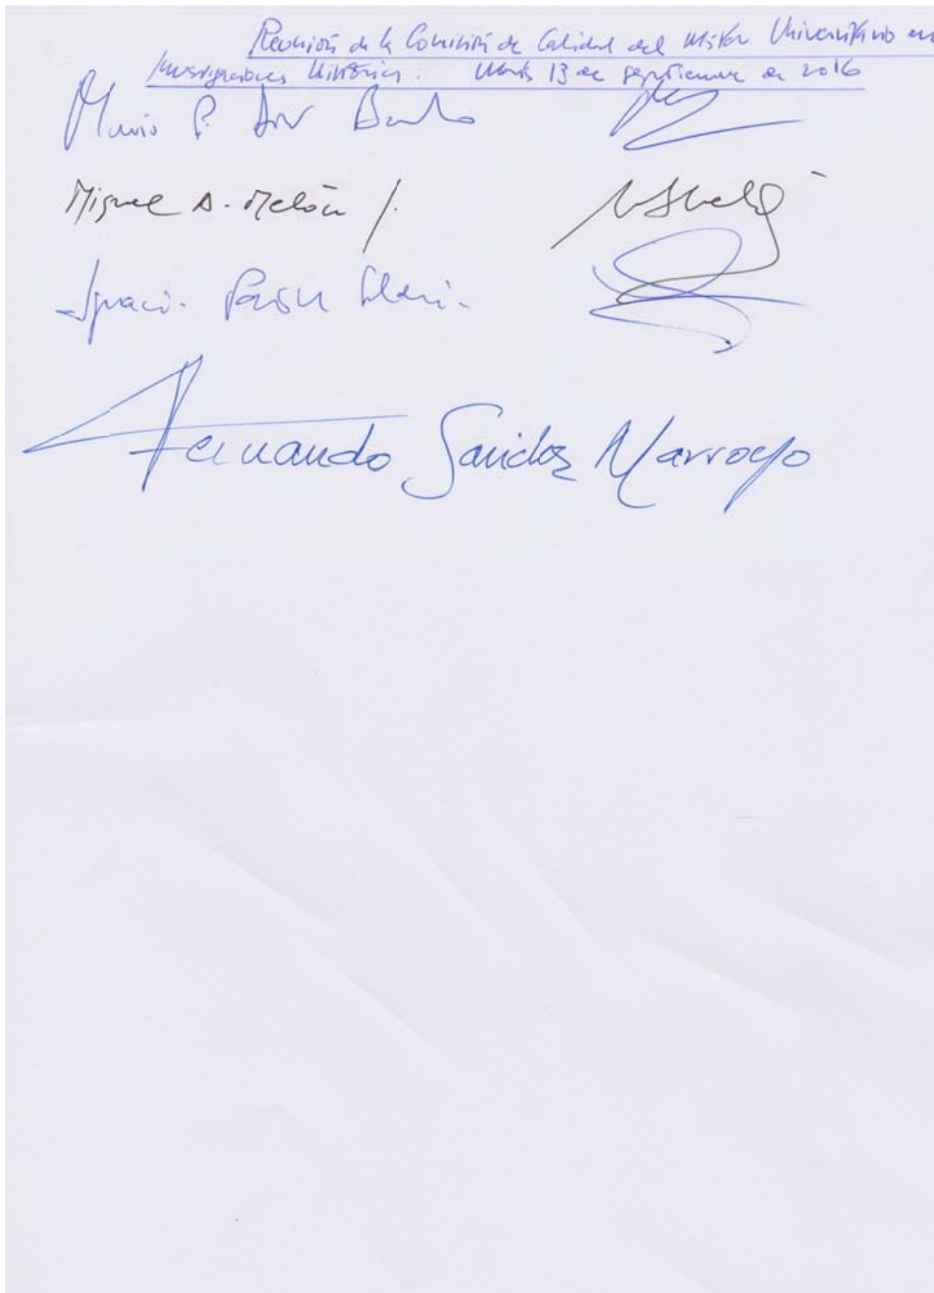 Reunión de la Comisión de Calidad del Máster Universitario en
Investigaciones Históricas. Martes 13 de septiembre de 2016
Mario P. Díaz
Miguel A. Melón J.
Ignacio Pavón
Fernando Sánchez Marroyo